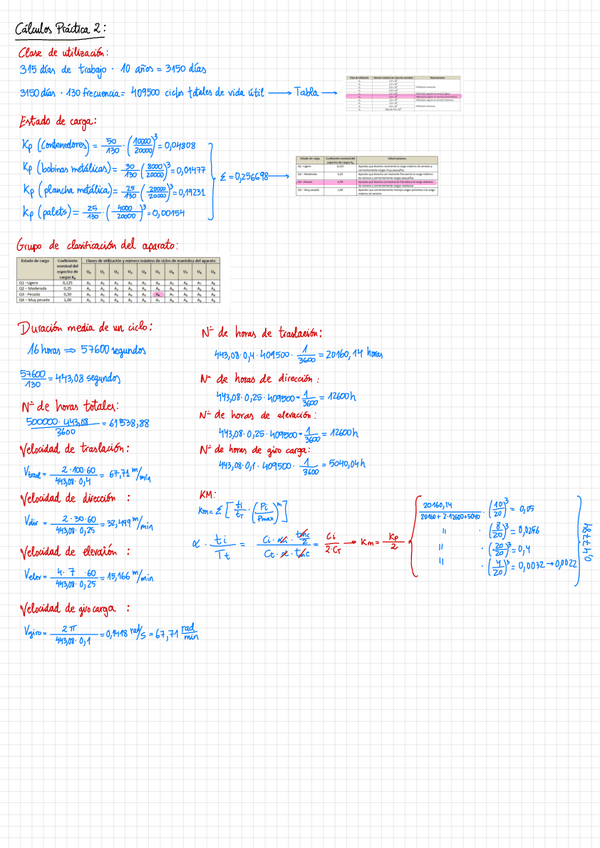 Cálculos Práctica 2:
Clase de utilización:
315 días de trabajo · 10 años = 3150 días
3150 días · 130 frecuencia = 409500 ciclos totales de vida útil → Tabla →
Estado de carga:
Kp (contenedores) = 50/130 · (10000/20000)^3 = 0,04808
Kp (bobinas metálicas) = 30/130 · (8000/20000)^3 = 0,01477
Kp (plancha metálica) = 25/130 · (20000/20000)^3 = 0,19231
Kp (palets) = 25/130 · (4000/20000)^3 = 0,00154
Σ = 0,256698 →
Grupo de clasificación del aparato:
Estado de carga | Coeficiente nominal del espectro de cargas Kp | Clases de utilización y número máximo de ciclos de maniobra del aparato
U0 U1 U2 U3 U4 U5 U6 U7 U8 U9
Q1 - Ligero 0,125
Q2 – Moderado 0,25
Q3 - Pesado 0,50
Q4 – Muy pesado 1,00
Duración media de un ciclo:
16 horas ⇒ 57600 segundos
57600/130 = 443,08 segundos
Nº de horas totales:
500000 · 443,08 / 3600 = 61538,88
Velocidad de traslación:
Vtrasl = 2·100·60 / 443,08·0,4 = 67,71 m/min
Velocidad de dirección :
Vdir = 2·30·60 / 443,08·0,25 = 32,499 m/min
Velocidad de elevación :
Velev = 4·7·60 / 443,08·0,25 = 15,166 m/min
Velocidad de giro carga :
Vgiro = 2π / 443,08·0,1 = 0,1418 rad/s = 67,71 rad/min
Nº de horas de traslación:
443,08·0,4·409500 · 1/3600 = 20160,14 horas
Nº de horas de dirección :
443,08·0,25·409500 · 1/3600 = 12600h
Nº de horas de elevación:
443,08·0,25·409500 · 1/3600 = 12600h
Nº de horas de giro carga:
443,08·0,1·409500 · 1/3600 = 5040,04h
KM:
Km = Σ [ti/tT · (Pi/Pmax)^m]
α · ti/Tt = Ci·α·tmc/2 / Ct·α·tmc = Ci/2·CT → Km = Kp/2
20160,14 / 20160+2·12600+5040 · (10/20)^3 = 0,05
" · (8/20)^3 = 0,0256
" · (20/20)^3 = 0,4
" · (4/20)^3 = 0,0032 → 0,0022
0,47781